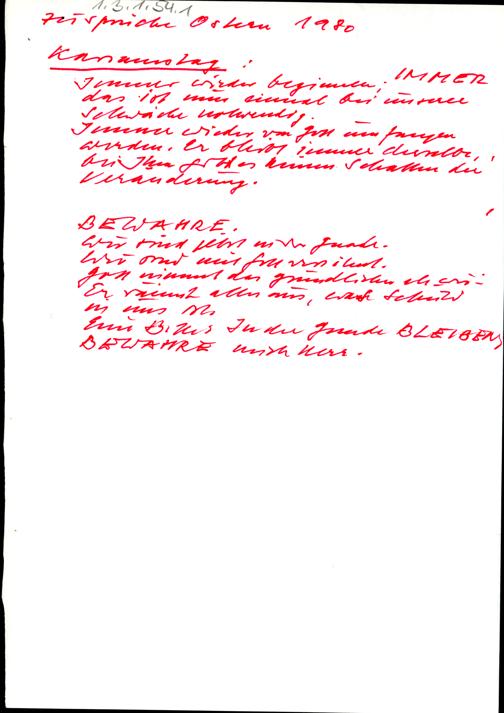 1.3.1.54.1
Zusprüche Ostern 1980
Karsamstag:
Immer wieder beginnen, IMMER
das ist nun einmal bei unserer
Schwäche notwendig.
Immer wieder von Gott umfangen
werden. Er bleibt immer derselbe,
bei Ihm gibt es keinen Schatten der
Veränderung.
BEWAHRE.
Wir sind jetzt in der Gnade.
Wir sind mit Gott versöhnt.
Gott nimmt das gründlicher als wir
Er räumt alles aus, was Schuld
in uns ist.
Eine Bitte: In der Gnade BLEIBEN,
BEWAHRE mich Herr.